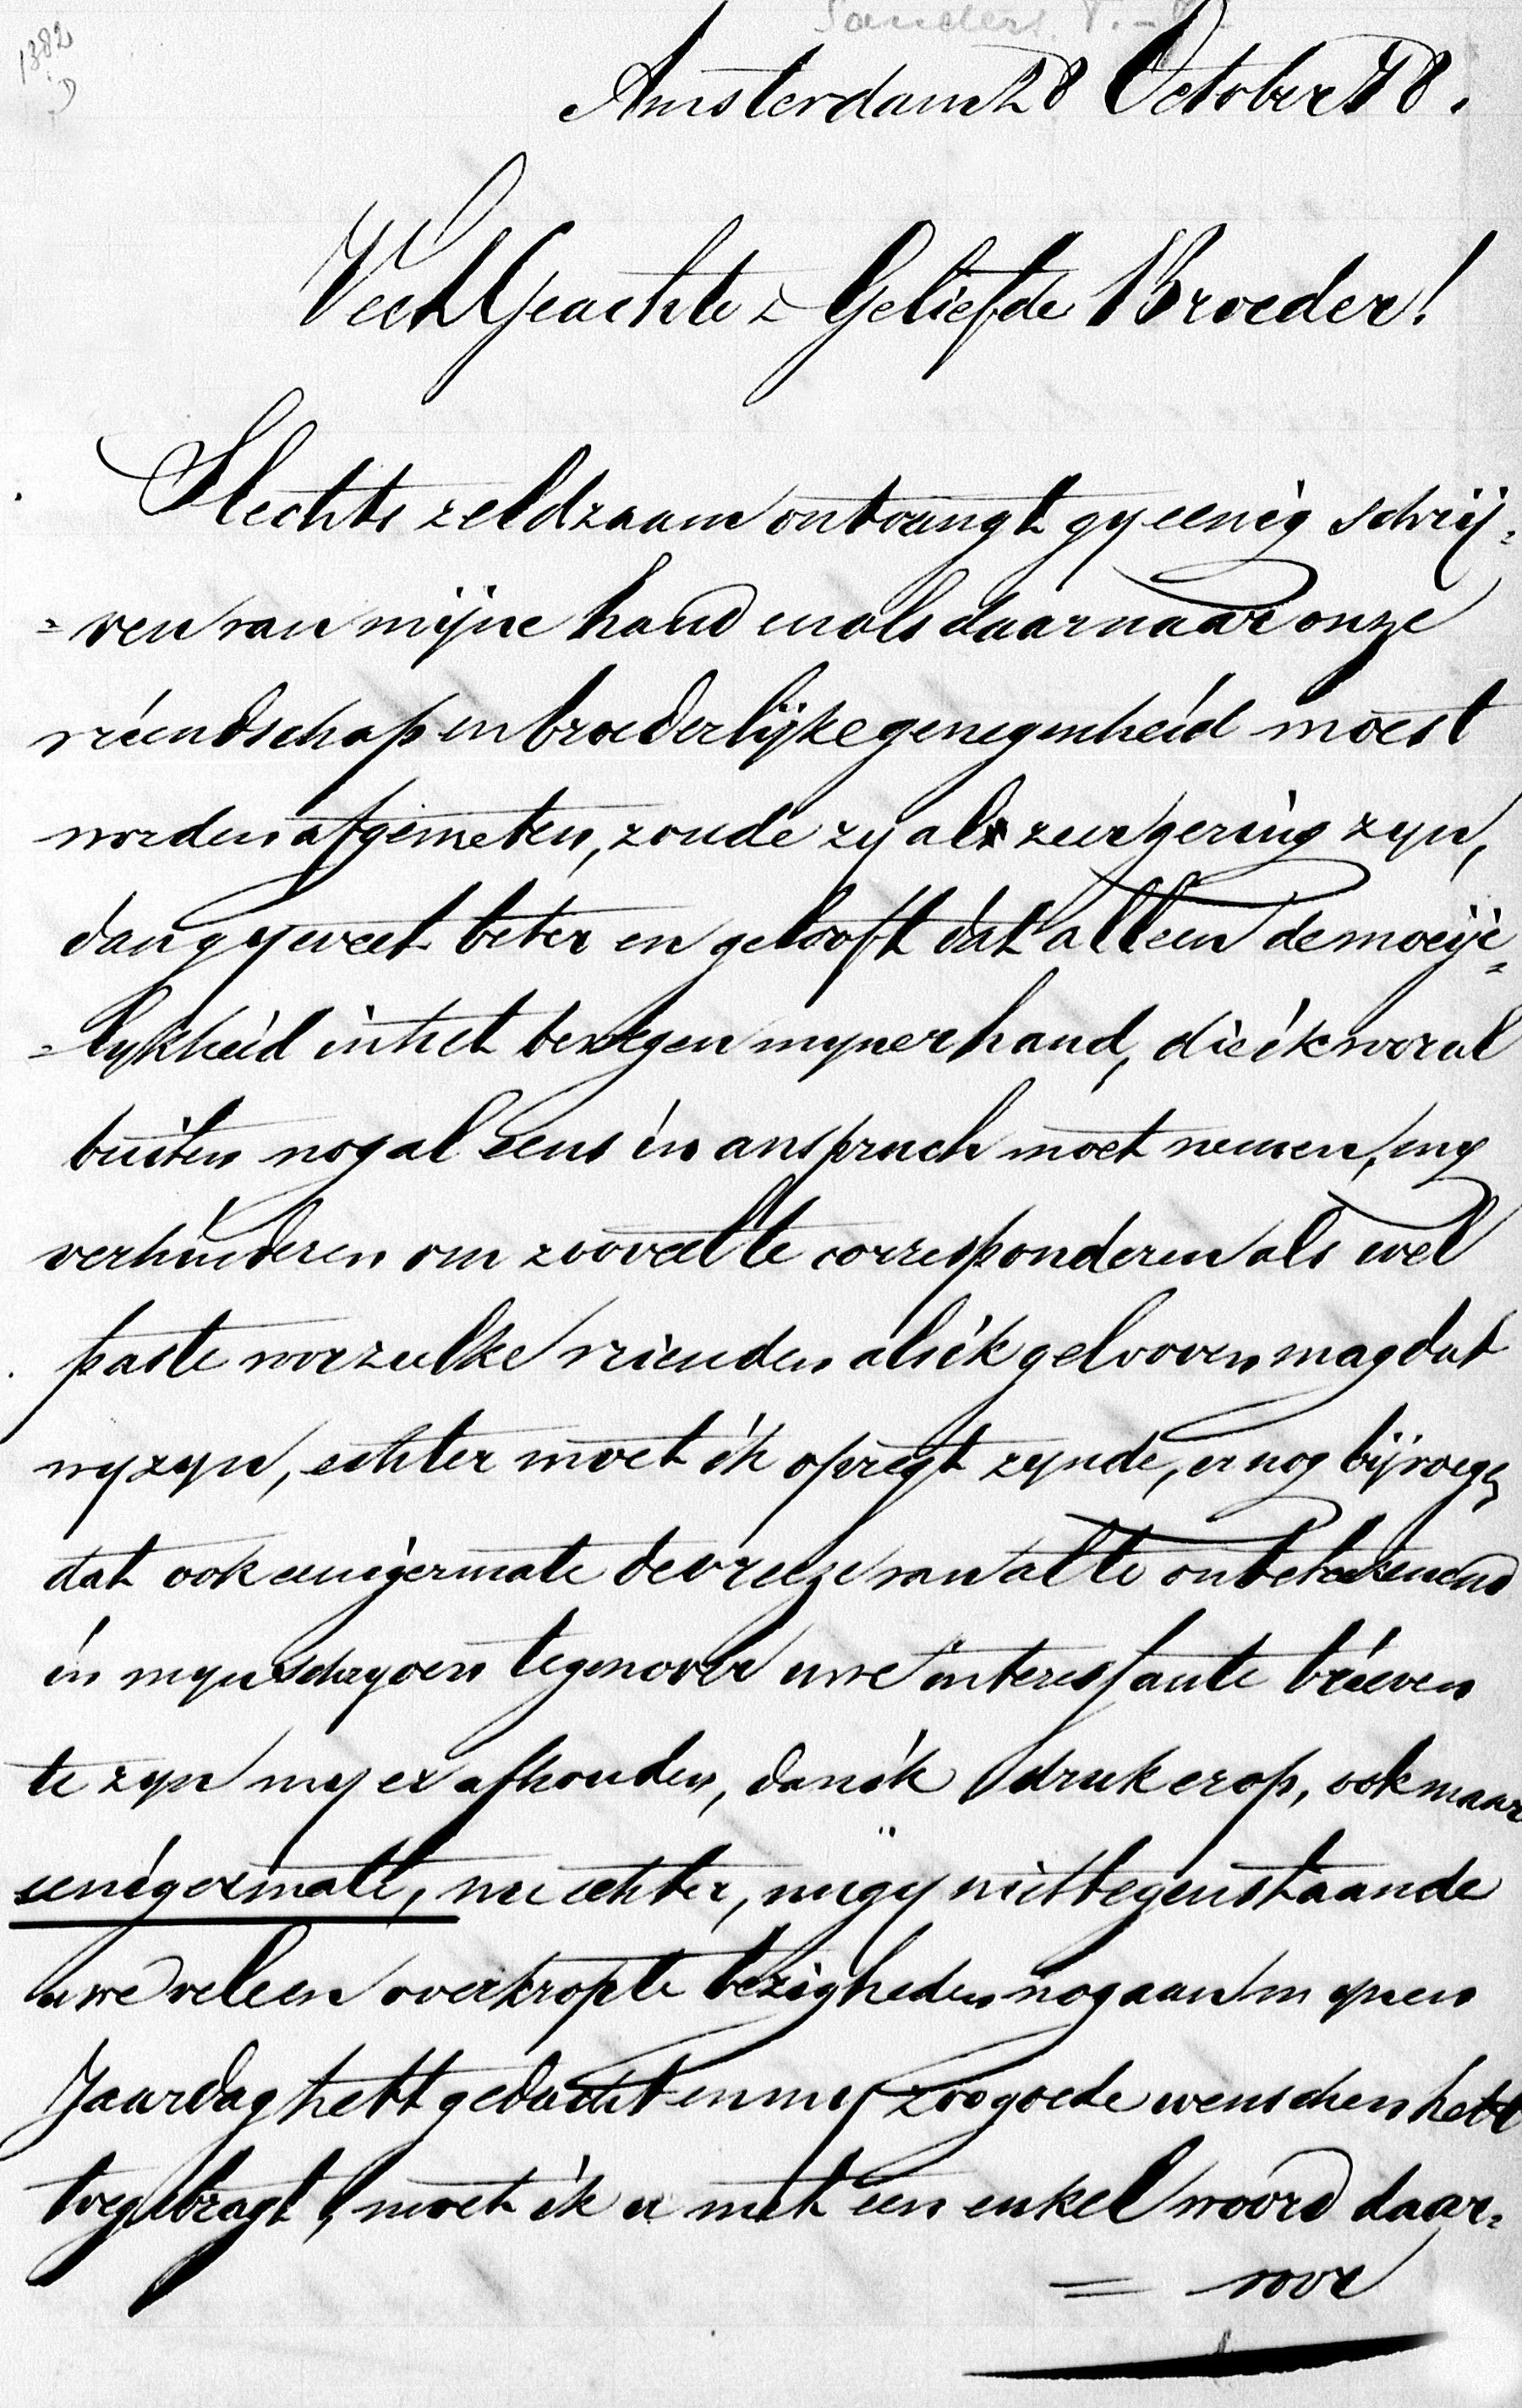 1382
Sanders. T.
Amsterdam 28 October 78.
Veel Geachte & Geliefde Broeder!
Slechts zeldzaam ontvangt gy eenig schrij=
=ven van mijne hand en als daarnaar onze
vriendschap en broederlijke genegenheid moest
worden afgemeten, zoude zy al zeer gering zyn,
dan gy weet beter en gelooft dat alleen de moeije=
=lykheid in het bewegen myner hand, die ik vooral
buiten nog al eens in anspruch moet nemen, my
verhinderen om zooveel te corresponderen als wel
paste voor zulke vrienden als ik gelooven mag dat
wy zyn, echter moet ik opregt zynde, er nog bijvoegen
dat ook eenigermate de vreeze van al te onbetekenend
in myn schryven tegenover uwe interessante brieven
te zyn my er afhouden, dan ik druk er op, ook maar
eenigermate, nu echter, nu gÿ niettegenstaande
uwe veleen overkropte bezigheden nog aan mynen
Jaardag hebt gedacht en my zoo goede wenschen hebt
toegebragt, moet ik u met een enkel woord daar=
= voor